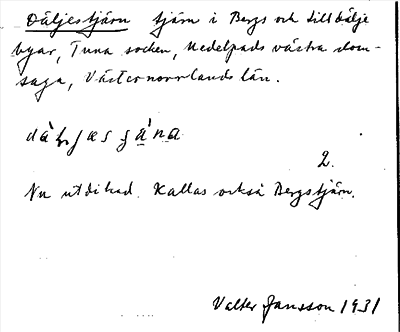 Däljestjärn tjärn i Bergs och Lilldälje
byar, Tuna socken, Medelpads västra dom-
saga, Västernorrlands län.
2.
Nu utdikad. Kallas också Bergstjärn.
Valter Jansson 1931